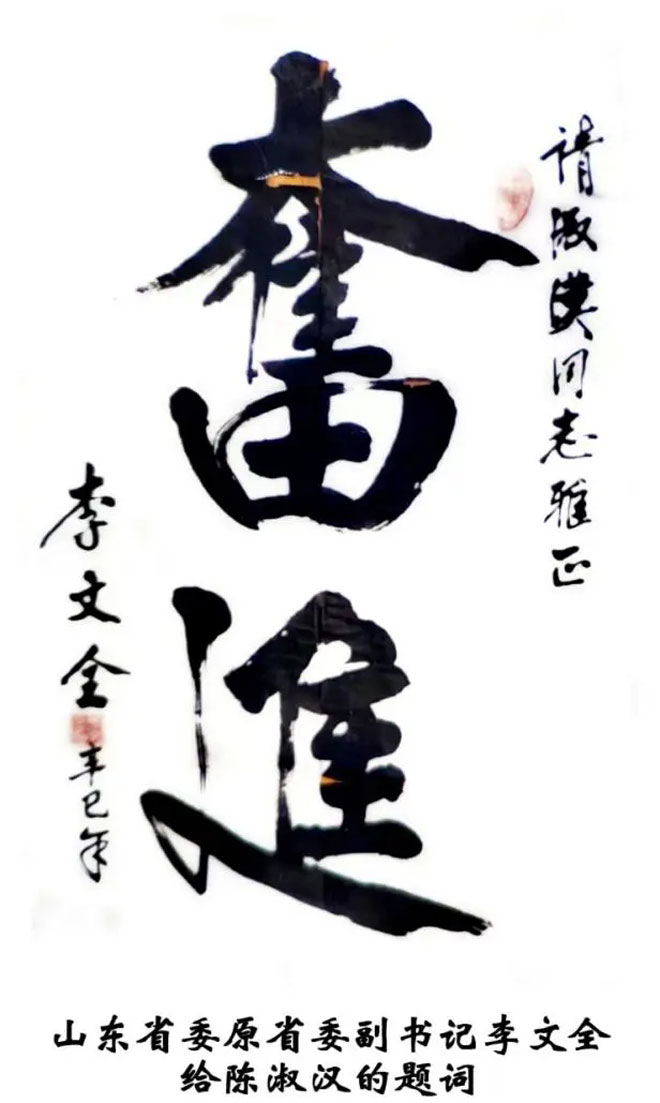 請淑漢同志雅正
奮進
李文全
辛巳年
山东省委原省委副书记李文全
给陈淑汉的题词